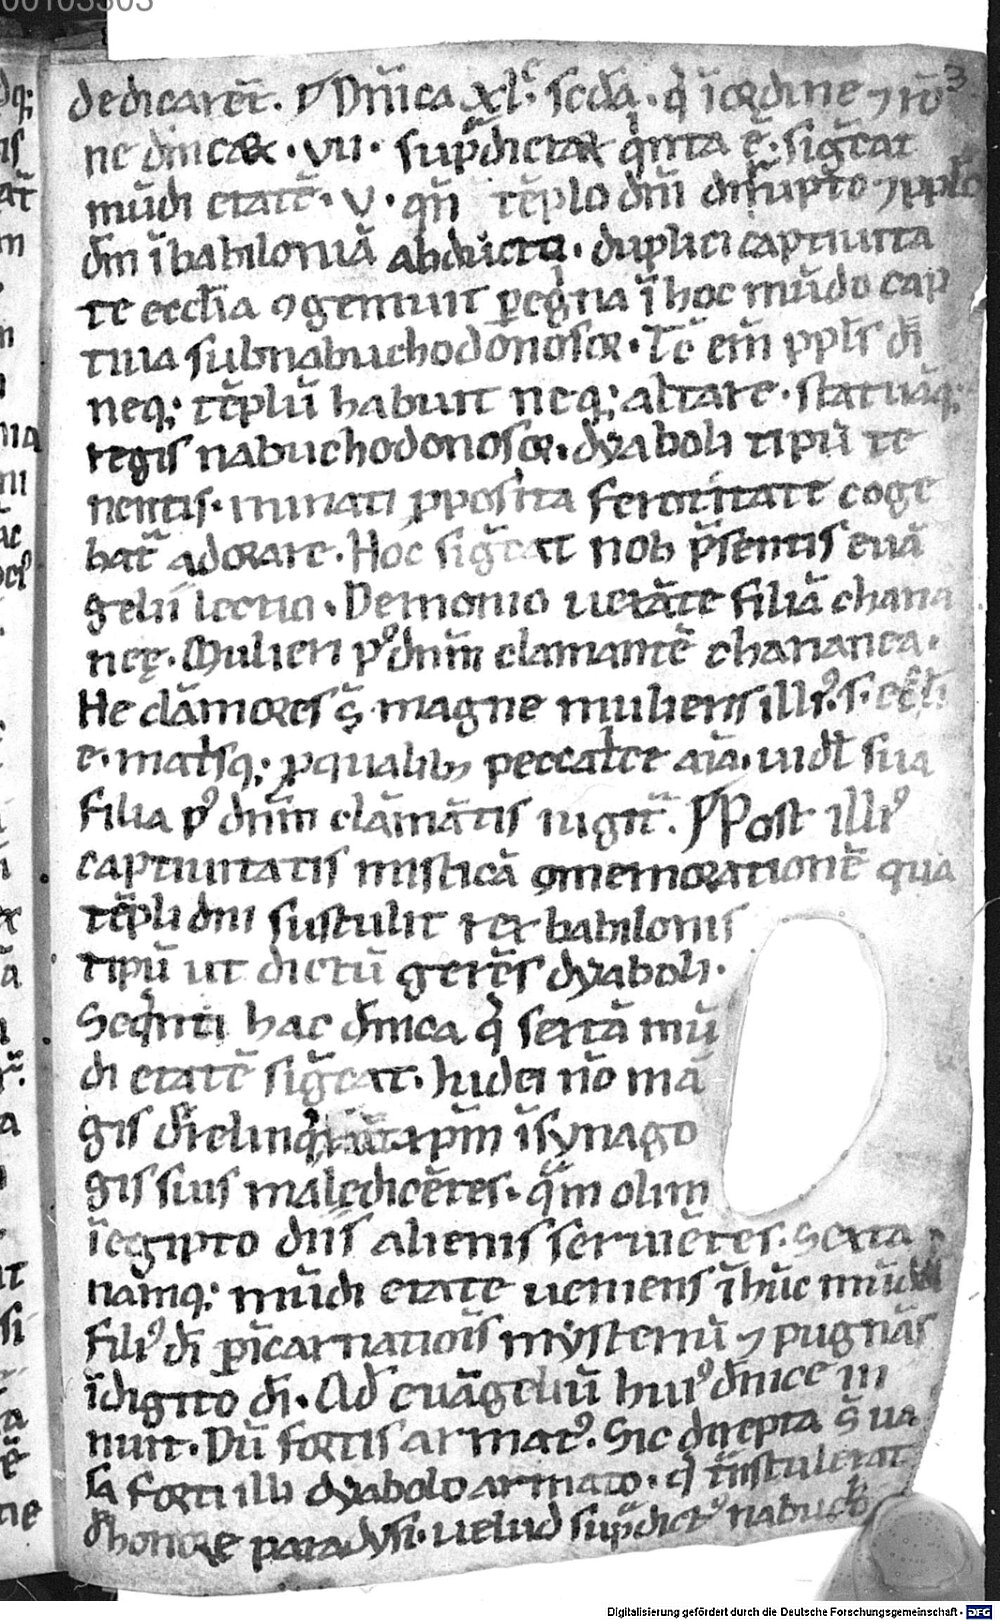 00103503
3
dedicarēt. Dn̄ica xl. scd̄a. q̄ ī ordine ⁊ rō
ne dn̄icaꝝ. vii. sup̄dictaꝝ qͥnta ē. sig̅cat
mūdi etatē. v. qn̄ tēplo dn̄i dirupto ⁊ pplo
dn̄i ī babiloniā abducto. duplici captiuita
te eccl̄ia ꝯgemuit ꝑegͥna ī hoc mūdo cap
tiua sub nabuchodonosor. Tc̄ em̄ ppl̄s dī
neq; tēplū habuit neq; altare. statuāq;
regis nabuchodonosor. dyaboli tipū te
nentis. minati ꝓposita feroritate coge
bat᷑ adorare. Hoc sig̅cat nob̄ p̄sentis euā
gelii lectio. Demonio uexāte filiā chana
neę. Mulieri pꝰ dn̄m clamantē chananea.
He clāmores s̄ magne mulieris illiꝰ. s. eccl̄i
e. mat̄sq; ꝓ qualibꝫ peccat͛ce aīa. uidl̄ sua
filia pꝰ dn̄m clāmātis iugit᷑. Post illiꝰ
captiuitatis misticā ꝯmemorationē qua
tēpli dn̄i sustulit rex babilonis
tipū ut dictū gerēs dyaboli.
Seqͥnti hac dn̄ica q̄ sextā mū
di etatē sig̅cat. Iudei nō mā
gis ī synago
gis suis maledicētes. qͣm olim
ī egipto dn̄is alienis seruiētes. Sexta
namq; mūdi etate ueniens ī hūc mūdū
filiꝰ dī ꝑ īcarnatiōis mysteriū ⁊ pugnās
ī digito dī. Ad euāgeliū huiꝰ dn̄ice in
nuit. Dū fortis armatꝰ. Sic direpta s̄ ua
sa forti illi dyabolo armato. q̄ t͛nstulerat
honore paradysi. uelud sup̄dictꝰ nabucho
Digitalisierung gefördert durch die Deutsche Forschungsgemeinschaft - DFG